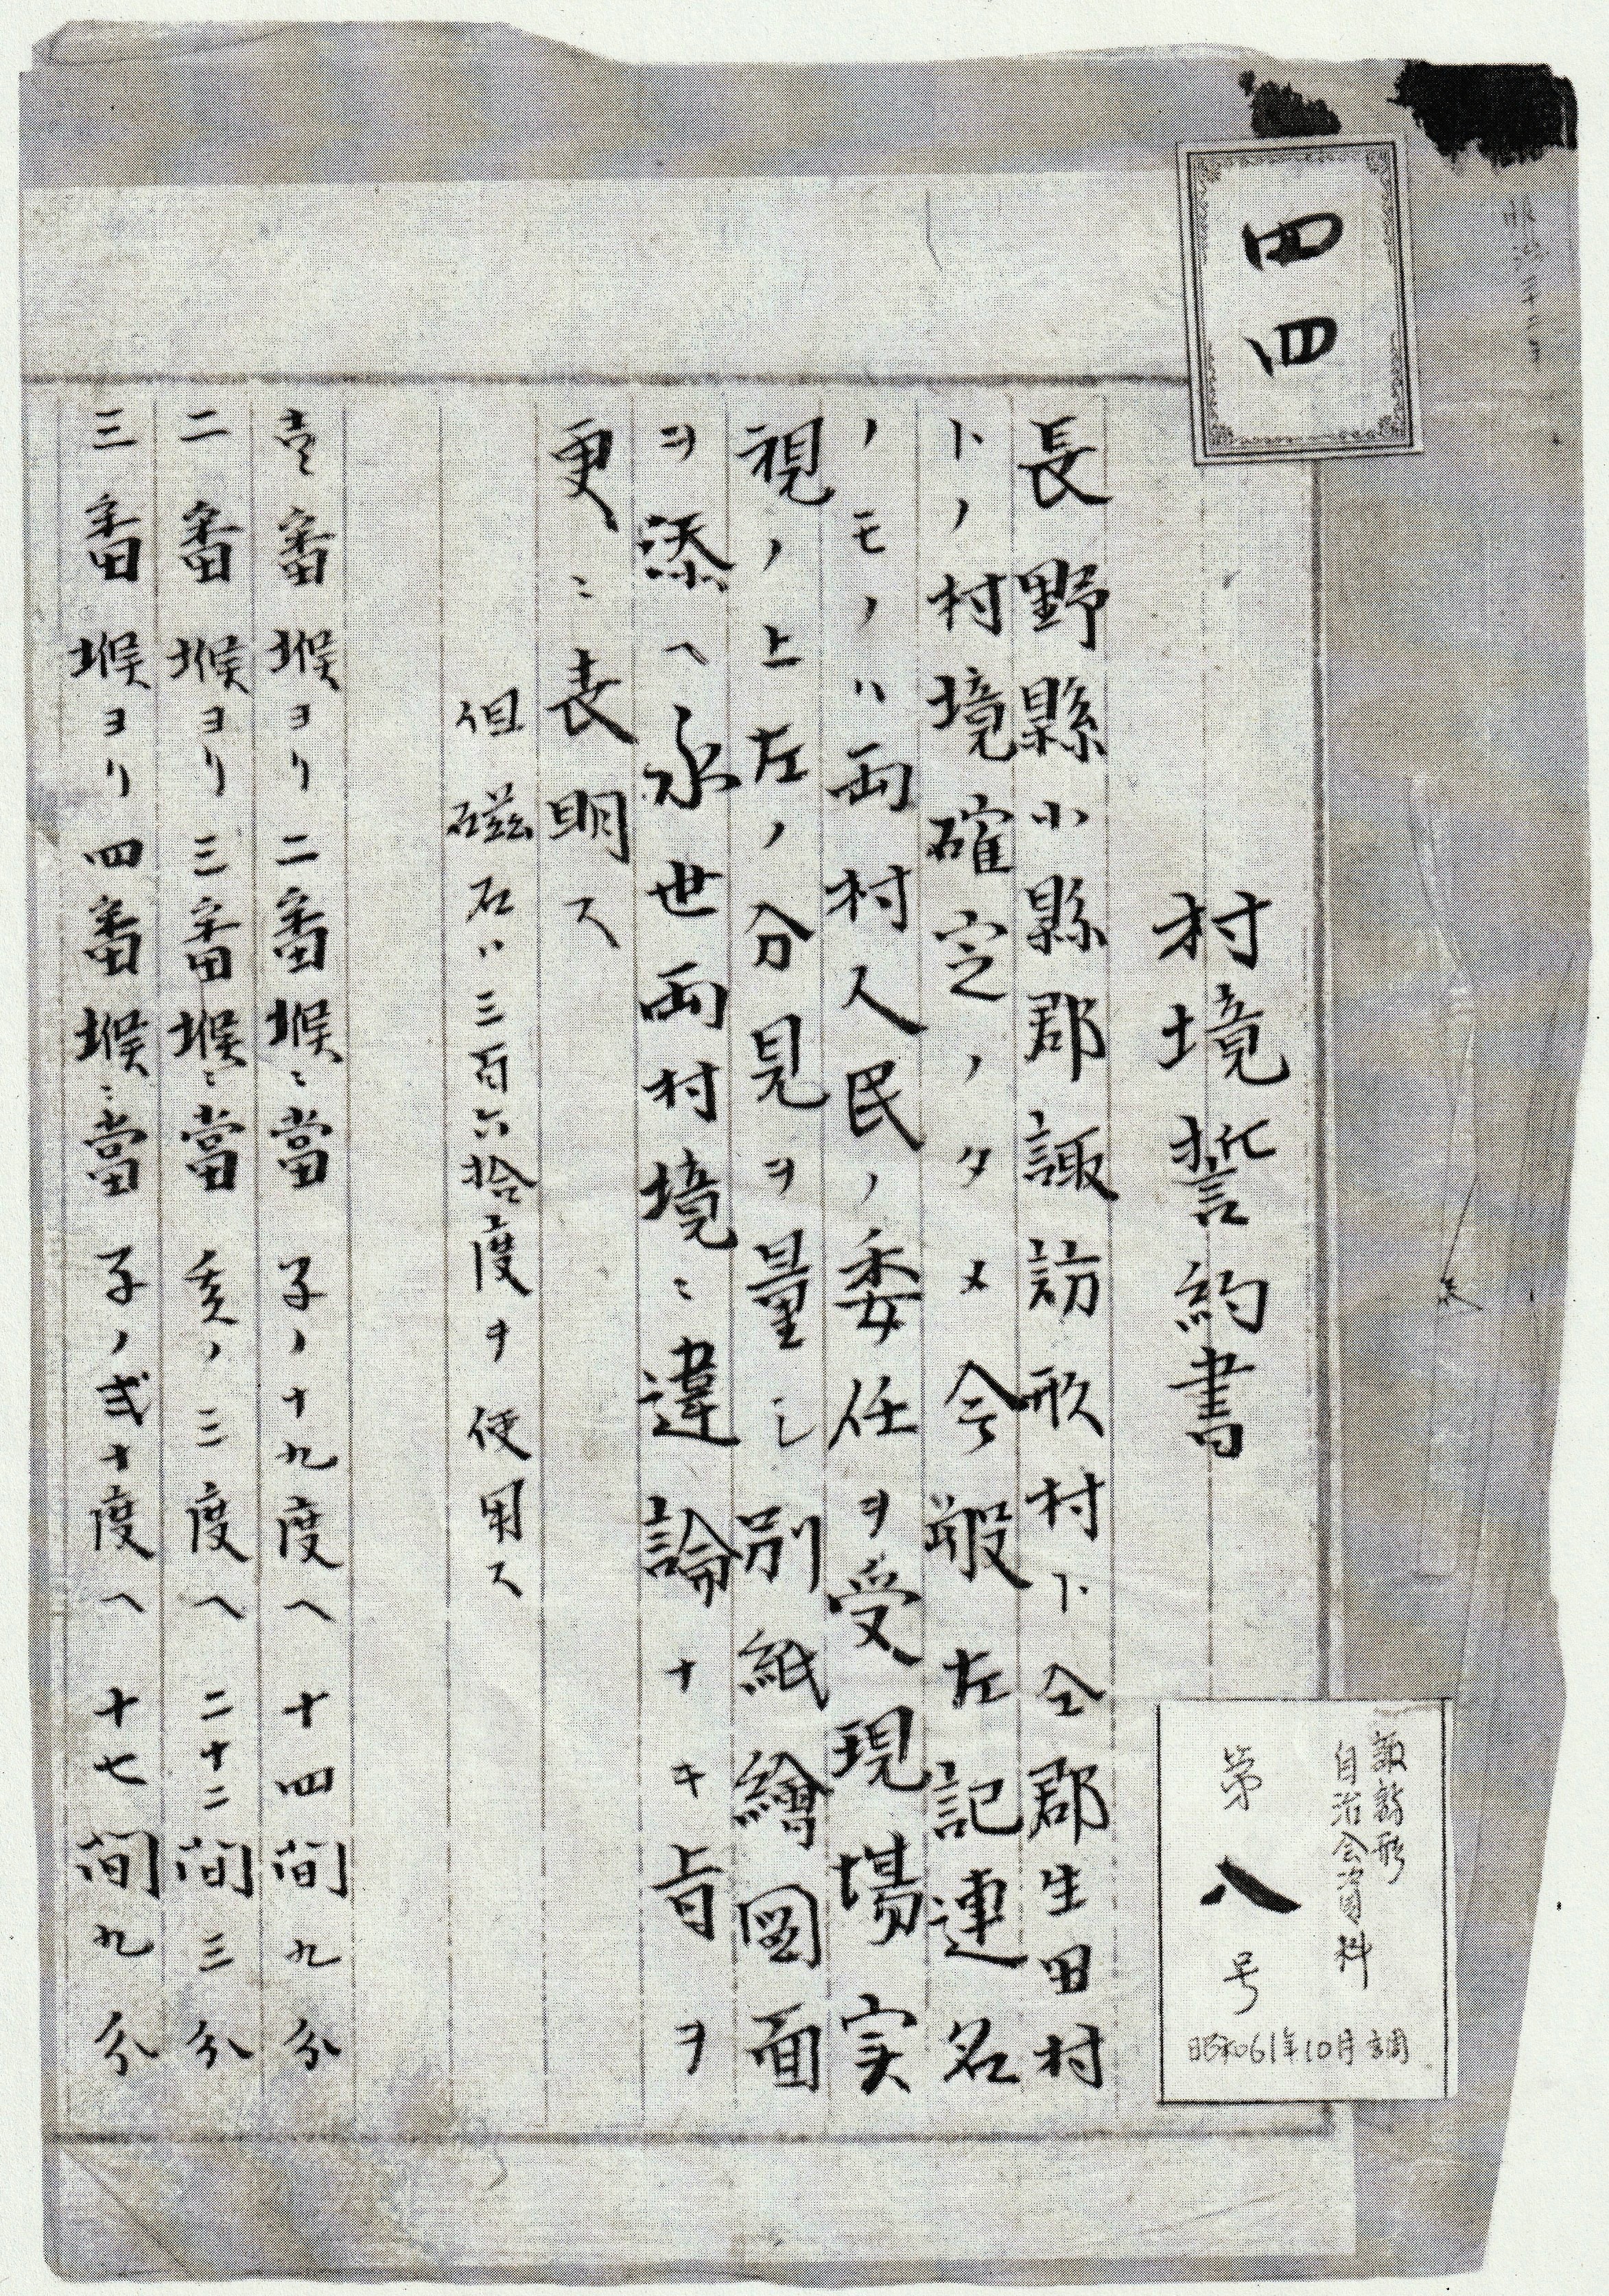 四四
村境誓約書
長野縣小縣郡諏訪形村ト仝郡生田村
トノ村境確定ノタメ今般左記連名
ノモノハ両村人民ノ委任ヲ受現場実
視ノ上左ノ分見ヲ量シ別紙繪圖面
ヲ添ヘ永世両村境ニ違論ナキ旨ヲ
更ニ表明ス
但磁石ハ三百六拾度ヲ使用ス
壱番堠ヨリ二番堠ニ當子ノ十九度ヘ十四間九分
二番堠ヨリ三番堠ニ當亥ノ三度ヘ二十二間三分
三番堠ヨリ四番堠ニ當子ノ弐十度ヘ十七間九分
諏訪形
自治会資料
第八号
昭和61年10月調